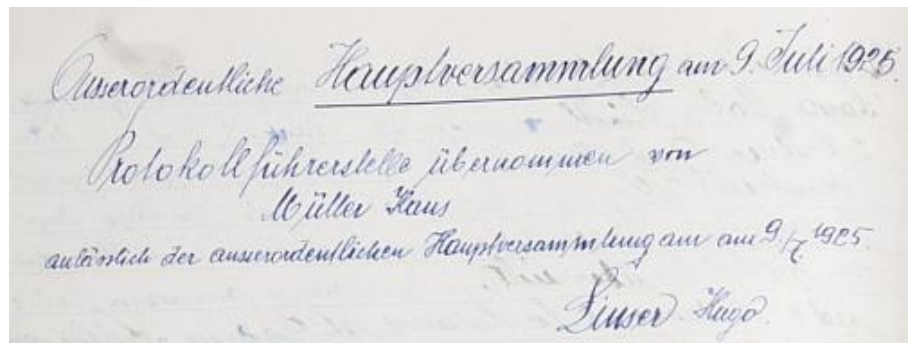 Ausserordentliche Hauptversammlung am 9. Juli 1925.
Protokollführerstelle übernommen von
Müller Hans
anlässlich der ausserordentlichen Hauptversammlung am am 9./7. 1925.
Linser Hugo.